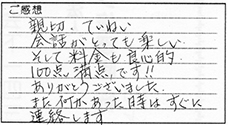 ご感想
親切、ていねい
会話がとっても楽しい
そして料金も良心的
100点満点です!!
ありがとうございました。
また何かあった時はすぐに
連絡します